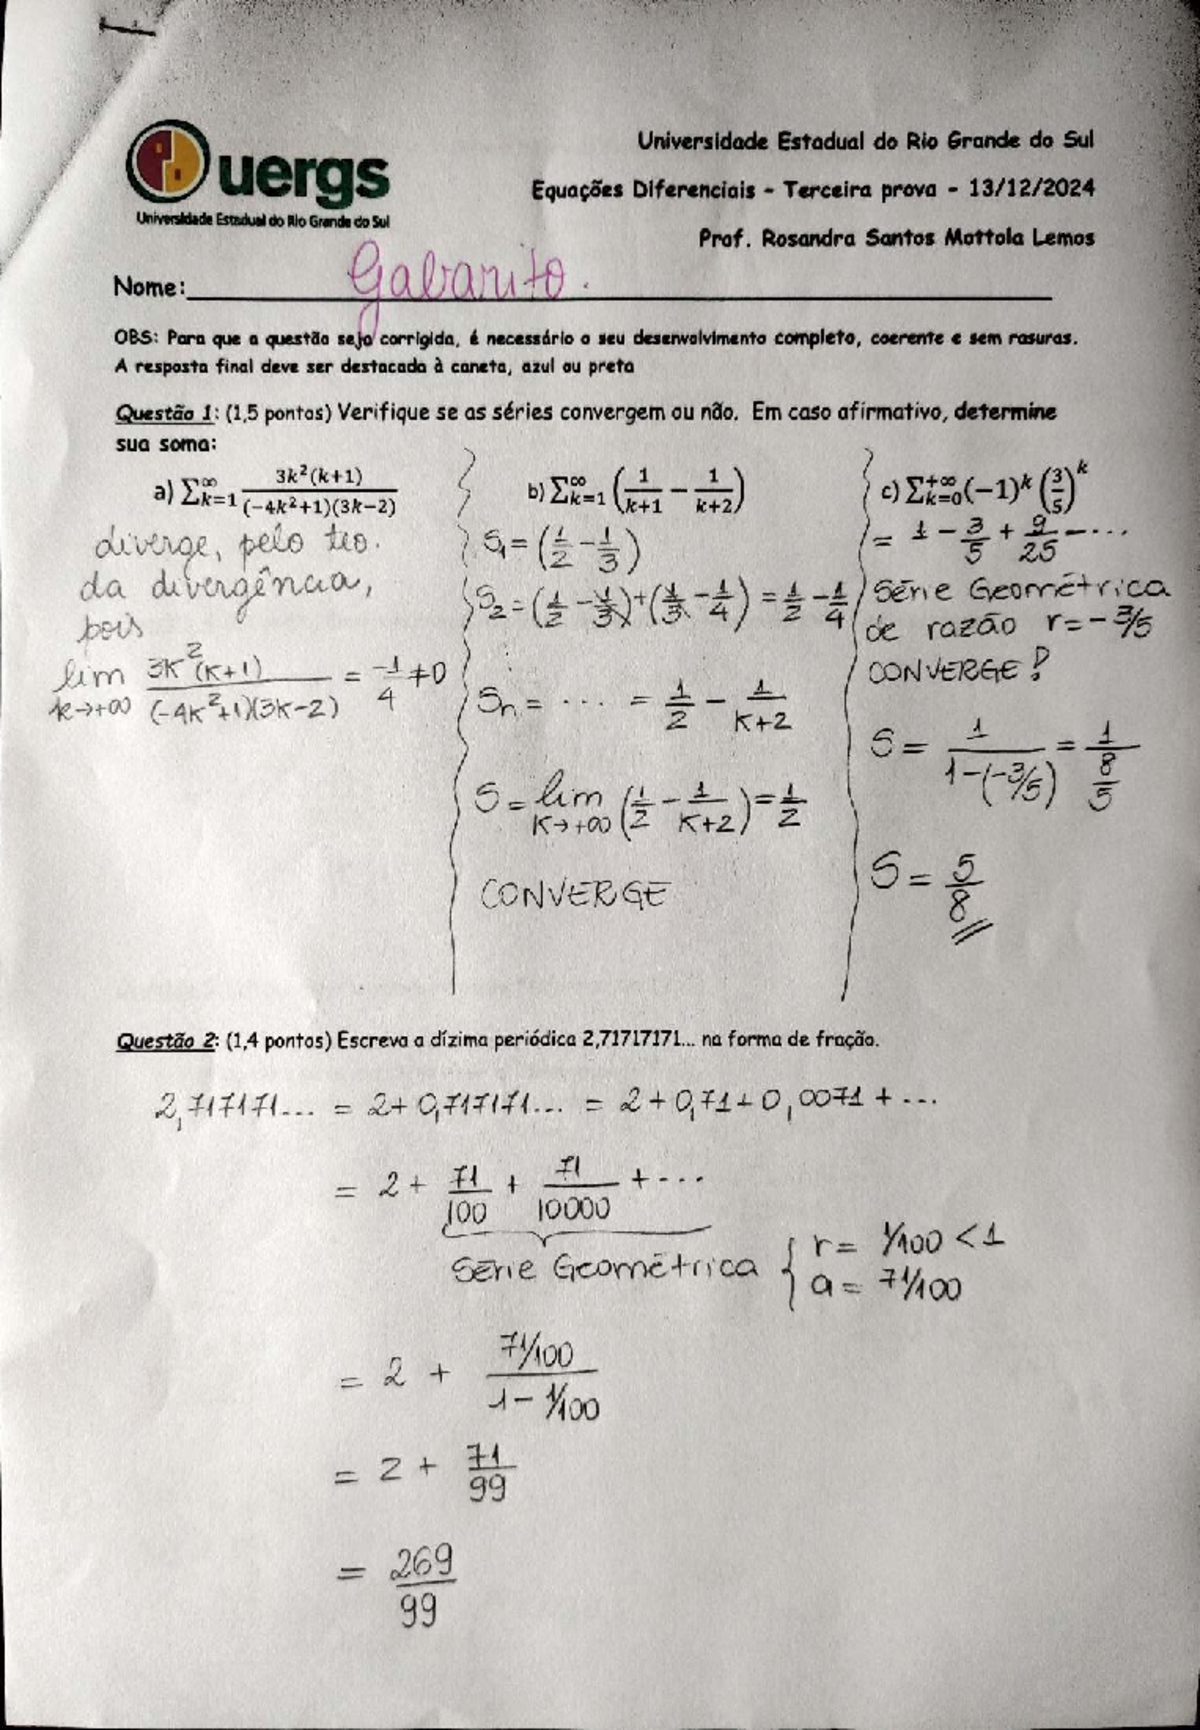 uergs
Universidade Estadual do Rio Grande do Sul
Universidade Estadual do Rio Grande do Sul
Equações Diferenciais - Terceira prova - 13/12/2024
Prof. Rosandra Santos Mottola Lemos
Nome: Gabarito.
OBS: Para que a questão seja corrigida, é necessário o seu desenvolvimento completo, coerente e sem rasuras.
A resposta final deve ser destacada à caneta, azul ou preta
Questão 1: (1,5 pontos) Verifique se as séries convergem ou não. Em caso afirmativo, determine
sua soma:
a) ∑_{k=1}^{∞} 3k²(k+1)/((-4k²+1)(3k-2))
diverge, pelo teo.
da divergência,
pois
lim_{k→+∞} 3k²(k+1)/((-4k²+1)(3k-2)) = -1/4 ≠ 0
b) ∑_{k=1}^{∞} (1/(k+1) - 1/(k+2))
S₁ = (1/2 - 1/3)
S₂ = (1/2 - 1/3) + (1/3 - 1/4) = 1/2 - 1/4
⋮
Sn = ... = 1/2 - 1/(K+2)
S = lim_{K→+∞} (1/2 - 1/(K+2)) = 1/2
CONVERGE
c) ∑_{k=0}^{+∞} (-1)^k (3/5)^k
= 1 - 3/5 + 9/25 - ...
Série Geométrica
de razão r = -3/5
CONVERGE!
S = 1/(1-(-3/5)) = 1/(8/5)
S = 5/8
Questão 2: (1,4 pontos) Escreva a dízima periódica 2,71717171... na forma de fração.
2,717171... = 2 + 0,717171... = 2 + 0,71 + 0,0071 + ...
= 2 + 71/100 + 71/10000 + ...
Série Geométrica { r = 1/100 < 1
a = 71/100
= 2 + (71/100)/(1 - 1/100)
= 2 + 71/99
= 269/99